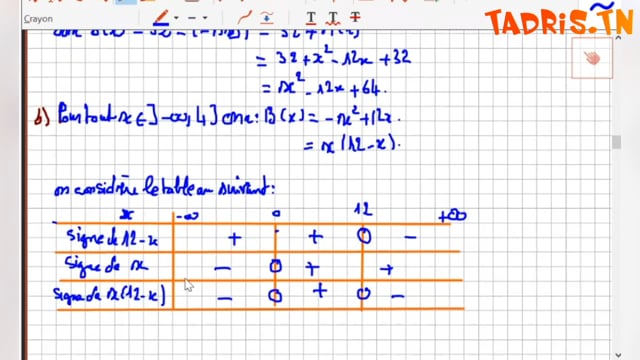 Crayon
TADRIS.TN
= 32 + x² - 12x + 32
= x² - 12x + 64.
b) Pour tout x ∈ ]-∞, 4] on a : B(x) = -x² + 12x
= x(12-x).
on considère le tableau suivant :
x -∞ 0 12 +∞
Signe de 12-x + + 0 -
Signe de x - 0 + +
Signe de x(12-x) - 0 + 0 -